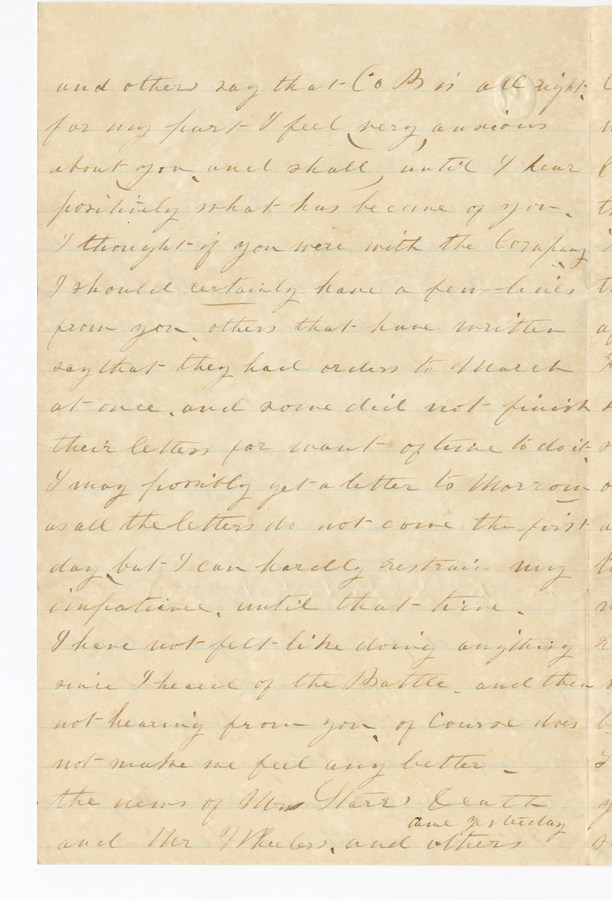 and others say that Co B is all right.
for my part I feel very anxious
about you, and shall, until I hear
positively what has become of you.
I thought if you were with the Company
I should certainly have a few lines
from you, others that have written
say that they had orders to March
at once, and some did not finish
their letters for want of time to do it,
I may possibly get a letter to Morrow
as all the letters do not come the first
day, but I can hardly restrain my
impatience, until that time.
I have not felt like doing anything
since I heard of the Battle, and then
not hearing from you, of Course does
not make me feel any better.
the news of Death
came yesterday
and Mr Wheelers, and others